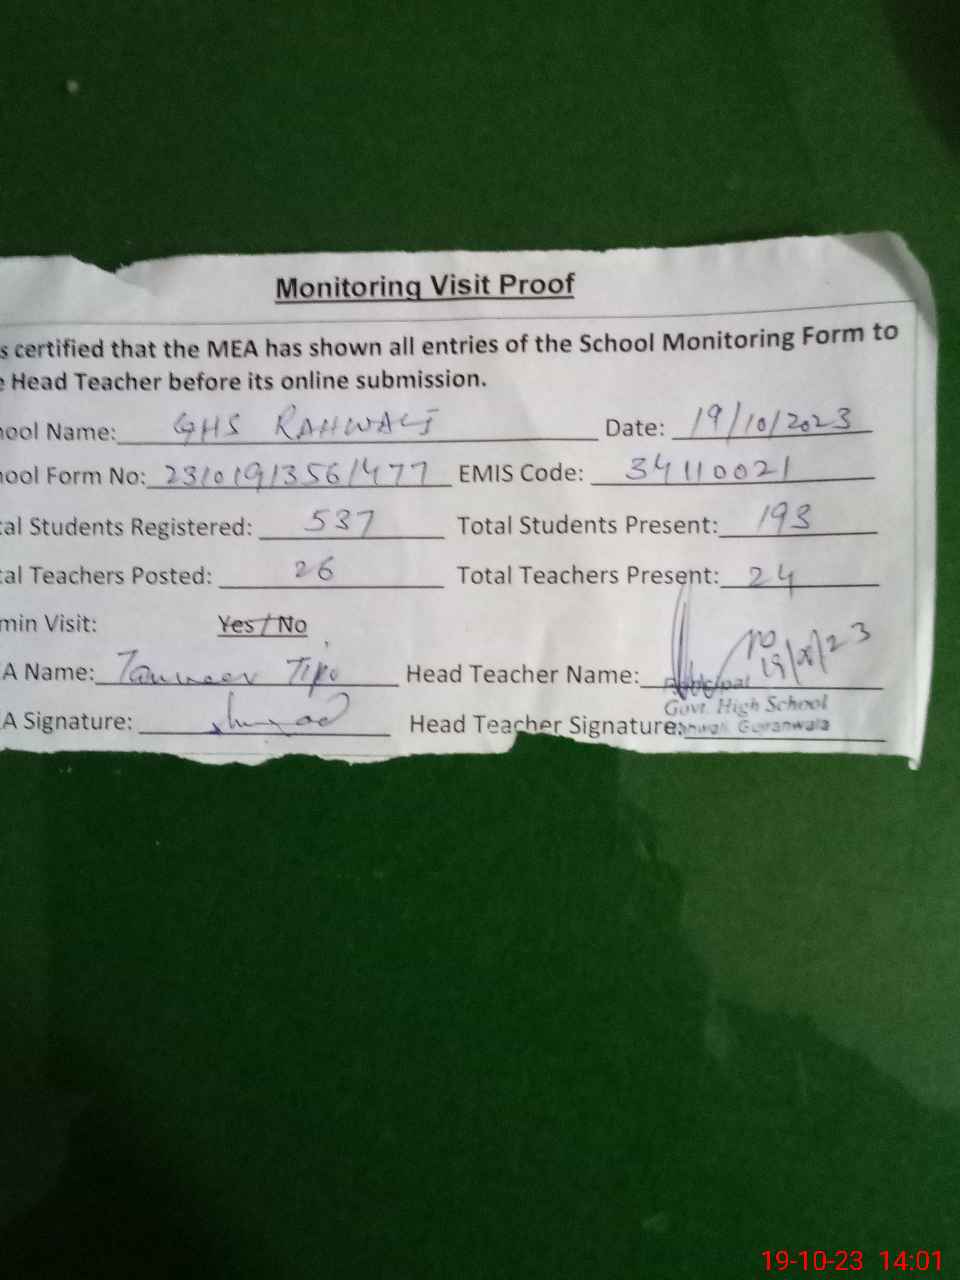 Monitoring Visit Proof
s certified that the MEA has shown all entries of the School Monitoring Form to
e Head Teacher before its online submission.
hool Name: GHS RAHWALI Date: 19/10/2023
hool Form No: 23101913561477 EMIS Code: 34110021
tal Students Registered: 537 Total Students Present: 193
tal Teachers Posted: 26 Total Teachers Present: 24
min Visit: Yes / No
A Name: Tanveer Tipo Head Teacher Name:
19/x/23
Principal
Govt. High School
A Signature: Head Teacher Signature:
19-10-23 14:01